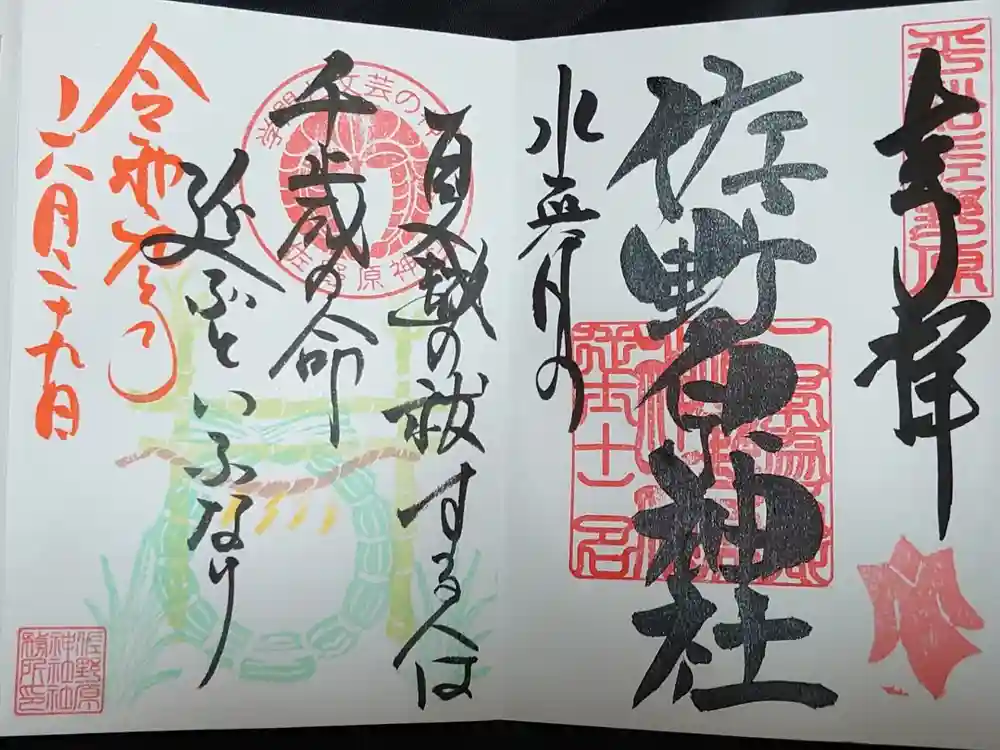 奉拝
佐野原神社
水無月の
夏越の祓する人は
千歳の命
延ぶといふなり
令和六年
六月二十九日
佐野原神社
佐野原
神社社
務所印